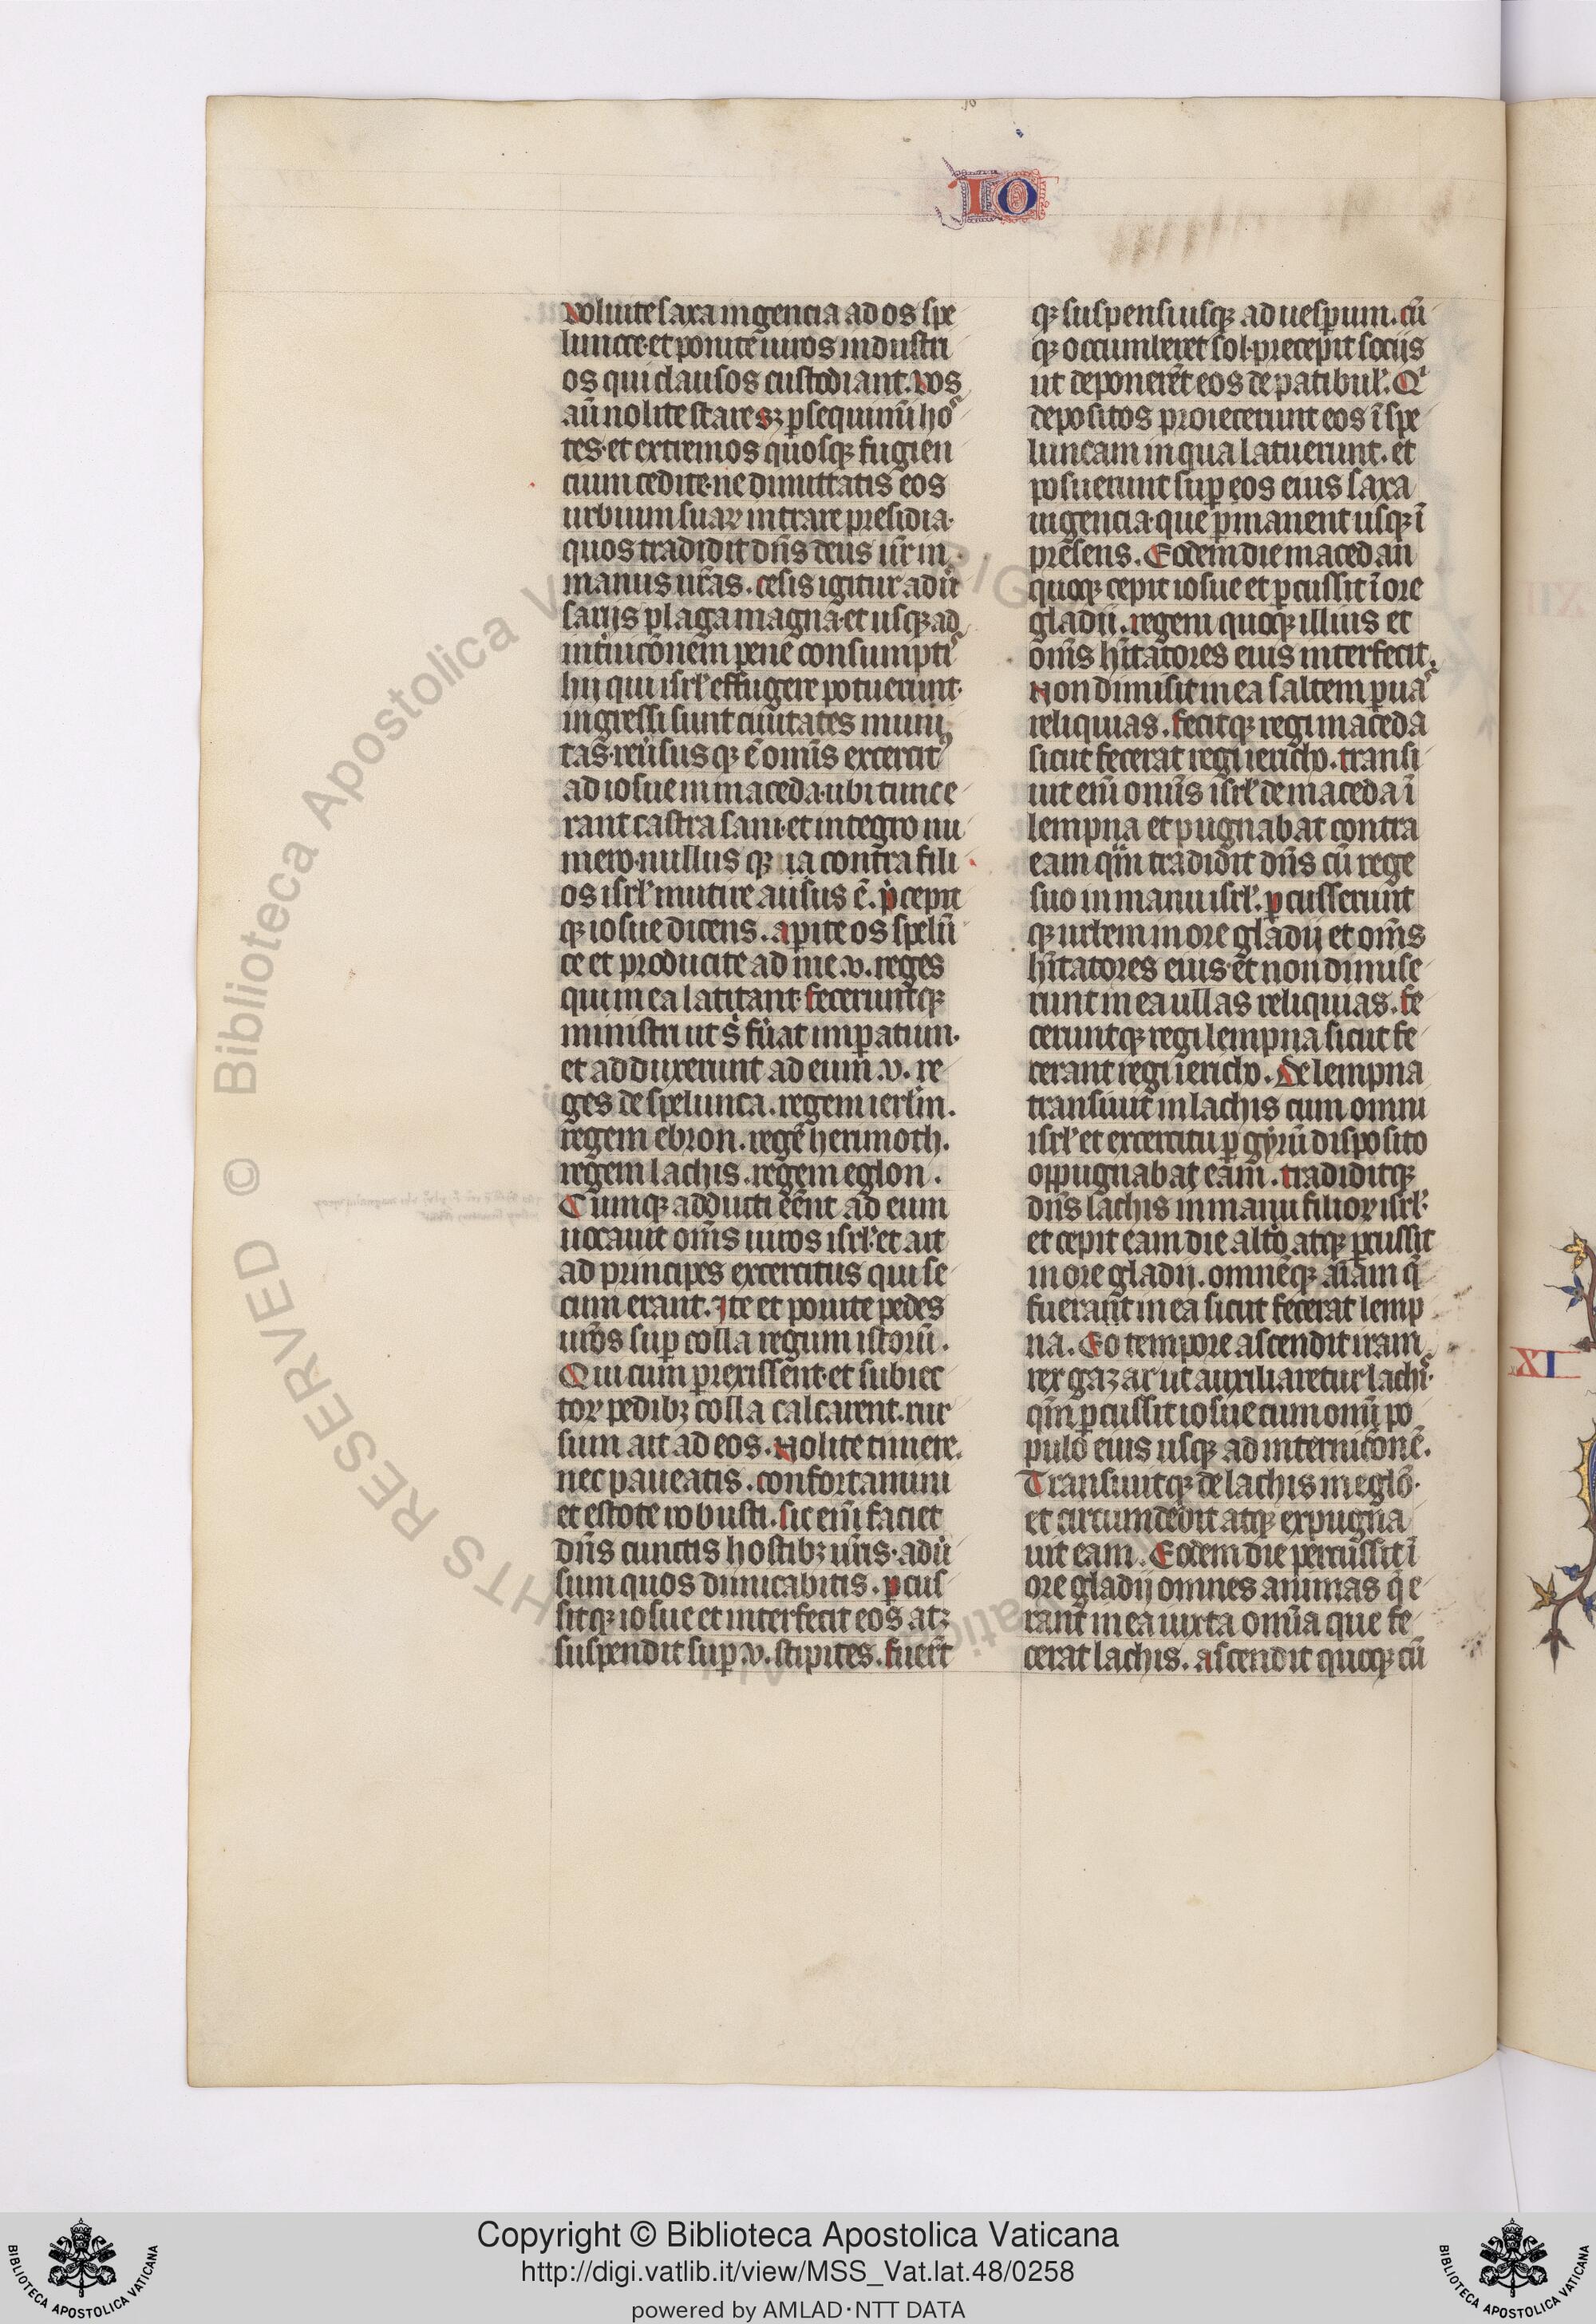 IO
voluite saxa ingencia ad os spe
luncce. et ponite uiros industri
os qui clausos custodiant. vos
aūt nolite stare sꝫ ꝑsequimī hos
tes. et extremos quosqꝫ fugien
cium cedite. ne dimittatis eos
urbium suaꝝ intrare presidia.
quos tradidit dn̄s deus ur̄ in
manus ur̄as. cesis igitur adūr
sariis plaga magna. et usqꝫ ad
int̄nic̄onem pene consumptis
hii qui isrl̄ effugere potuerunt.
ingressi sunt ciuitates muni
tas. reūsusqꝫ ē omīs excercitꝰ
ad iosue in maceda. ubi tunc e
rant castra sani. et integro nu
mero. nullusqꝫ ua contra fili
os isrl̄ mutire ausus ē. p̄cepit
qꝫ iosue dicens. aperite os spelū
ce et producite ad me .v. reges
qui in ea latitant. feceruntqꝫ
ministri ut s̄ fūat imꝑatum.
et adduxerunt ad eum .v. re
ges de spelunca. regem ierl̄m.
regem ebron. regē herimoth.
regem lachis. regem eglon.
Cumqꝫ adducti eēnt ad eum
uocauit om̄s uiros isrl̄. et ait
ad principes excercitus qui se
cum erant. Ite et ponite pedes
ur̄os suꝑ colla regum istoꝝ.
Qui cum ꝑrexissent. et subiec
toꝝ pedibꝫ colla calcarent. rur
sum ait ad eos. Nolite timere.
nec paueatis. confortamini
et estote robusti. sic eīm faciet
dn̄s cunctis hostibꝫ ur̄is. adū
sum quos dimicabitis. ꝑcus
sitqꝫ iosue et interfecit eos atqꝫ
suspendit suꝑ .v. stipites. fuer̄t
qꝫ suspensi usqꝫ ad uesꝑum. cū
qꝫ occumberet sol. precepit sociis
ut deponerēt eos de patibul̄. Qi
depositos proiecerunt eos ī spe
luncam in qua latuerunt. et
posuerunt suꝑ eos eius saxa
ingencia. que ꝑmanent usqꝫ ī
presens. Eodem die macedan
quoqꝫ cepit iosue et ꝑcussit ī ore
gladii. regem quoqꝫ illius et
om̄s h̄itatores eius interfecit.
Non dimisit in ea saltem ꝑuas
reliquias. fecitqꝫ regi maceda
sicut fecerat regi iericho. transi
uit eīm omīs isrl̄ de maceda ī
lempna et pugnabat contra
eam qm̄ tradidit dn̄s cū rege
suo in manu isrl̄. ꝑcusserunt
qꝫ urbem in ore gladii et om̄s
h̄itatores eius. et non dimise
runt in ea ullas reliquias. fe
ceruntqꝫ regi lempna sicut fe
cerant regi iericho. De lempna
transiuit in lachis cum omni
isrl̄ et excercitu ꝑ gyrū disposito
oppugnabat eam. tradiditqꝫ
dn̄s lachis in manu filioꝝ isrl̄.
et cepit eam die alto atqꝫ ꝑcussit
in ore gladii. omnēqꝫ aīam q̄
fuerant in ea sicut fecerat lemp
na. Eo tempore ascendit iram
rex gazar ut auxiliaretur lachis.
qm̄ ꝑcussit iosue cum omī po
pulo eius usqꝫ ad internic̄onē.
Transiuitqꝫ de lachis in eglō.
et circumdedit atqꝫ expugna
uit eam. Eodem die percussit ī
ore gladii omnes animas q̄ e
rant in ea iuxta omīa que fe
cerat lachis. ascendit quoqꝫ cū
XI
© Biblioteca Apostolica Vaticana
RIGHTS RESERVED
Copyright © Biblioteca Apostolica Vaticana
http://digi.vatlib.it/view/MSS_Vat.lat.48/0258
powered by AMLAD·NTT DATA
BIBLIOTECA APOSTOLICA VATICANA
BIBLIOTECA APOSTOLICA VATICANA